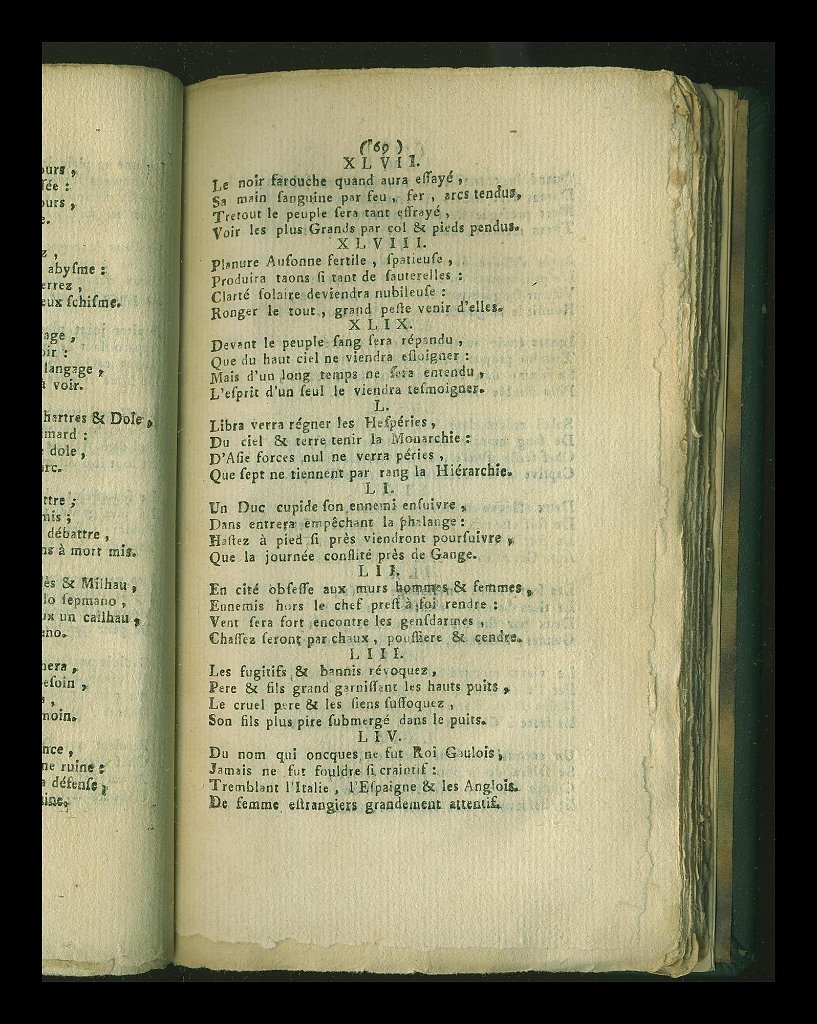 ours ,
ſée :
ours ,
e.
z ,
abyſme :
errez ,
eux ſchiſme.
age ,
oir :
langage ,
à voir.
hartres & Dole ,
mard :
dole ,
arc.
ttre ;
mis ;
débattre ,
ns à mort mis.
ès & Milhau ,
lo ſepmano ,
ux un caillhau ,
eno.
nera ,
eſoin ,
,
moin.
nce ,
ne ruine :
a défenſe ,
ine.
( 69 )
XLVII.
Le noir farouche quand aura eſſayé ,
Sa main ſanguine par feu , fer , arcs tendus,
Tretout le peuple ſera tant eſſrayé ,
Voir les plus Grands par col & pieds pendus.
XLVIII.
Planure Auſonne fertile , ſpatieuſe ,
Produira taons ſi tant de ſauterelles :
Clarté ſolaire deviendra nubileuſe :
Ronger le tout , grand peſte venir d'elles.
XLIX.
Devant le peuple ſang ſera répandu ,
Que du haut ciel ne viendra eſloigner :
Mais d'un long temps ne ſera entendu ,
L'eſprit d'un ſeul le viendra teſmoigner.
L.
Libra verra régner les Heſpéries ,
Du ciel & terre tenir la Monarchie :
D'Aſie forces nul ne verra péries ,
Que ſept ne tiennent par rang la Hiérarchie.
LI.
Un Duc cupide ſon ennemi enſuivre ,
Dans entrera empêchant la phalange :
Haſtez à pied ſi près viendront pourſuivre ,
Que la journée conſlité près de Gange.
LII.
En cité obſeſſe aux murs hommes & femmes ,
Ennemis hors le chef preſt à ſoi rendre :
Vent ſera fort encontre les genſdarmes ,
Chaſſez ſeront par chaux , pouſſiere & cendre.
LIII.
Les fugitifs & bannis révoquez ,
Pere & fils grand garniſſant les hauts puits ,
Le cruel pere & les ſiens ſuffoquez ,
Son fils plus pire ſubmergé dans le puits.
LIV.
Du nom qui oncques ne fut Roi Gaulois ,
Jamais ne fut fouldre ſi craintif :
Tremblant l'Italie , l'Eſpaigne & les Anglois.
De femme eſtrangiers grandement attentif.